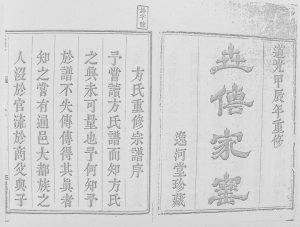 道光甲辰年重修
家
河堂珍藏
方氏重修宗譜序
予嘗讀方氏譜而知方氏
之興未可量也予何知予
於譜不失傳傳得其真者
知之嘗有通邑大都族之
人於官流於商父與子